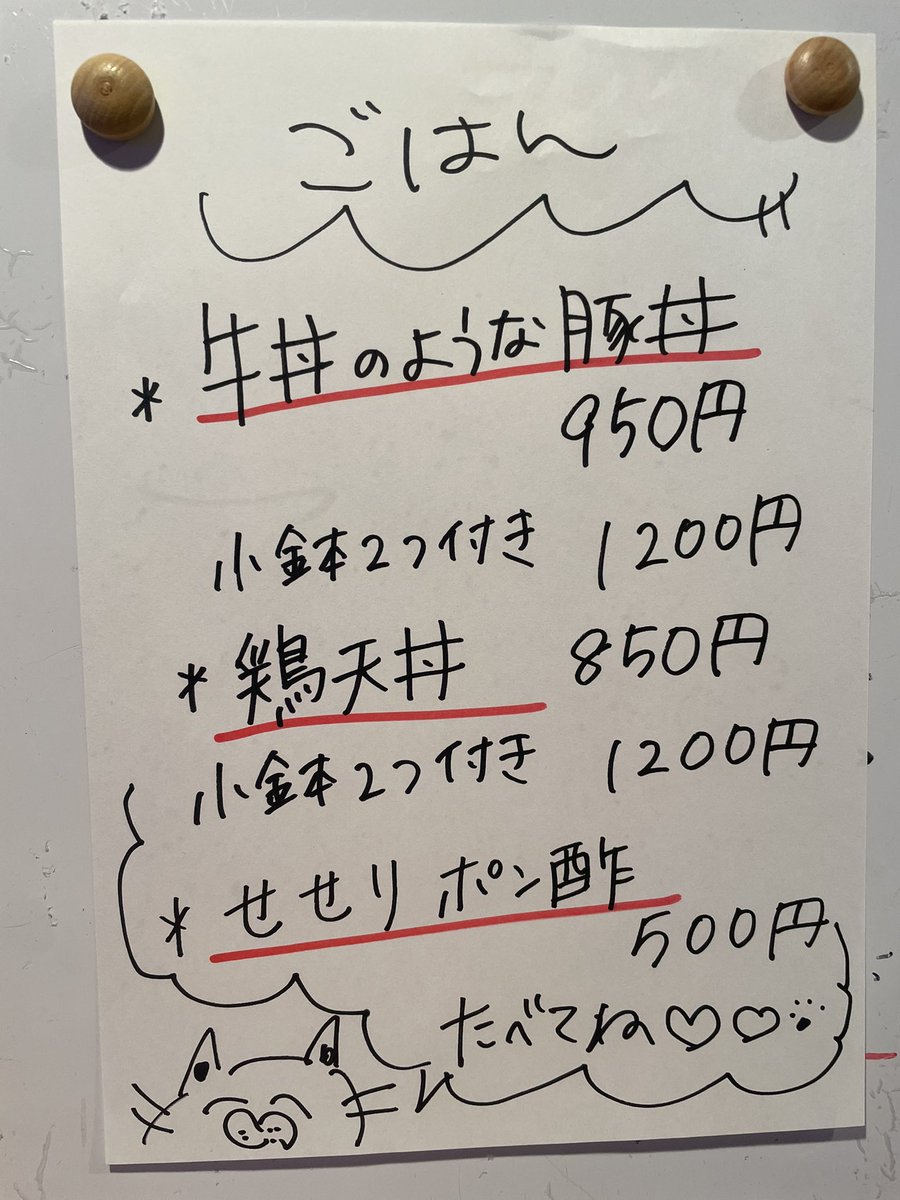 ごはん
* 牛丼のような豚丼
950円
小鉢2つ付き 1200円
* 鶏天丼 850円
小鉢2つ付き 1200円
* せせり ポン酢
500円
たべてね♡♡